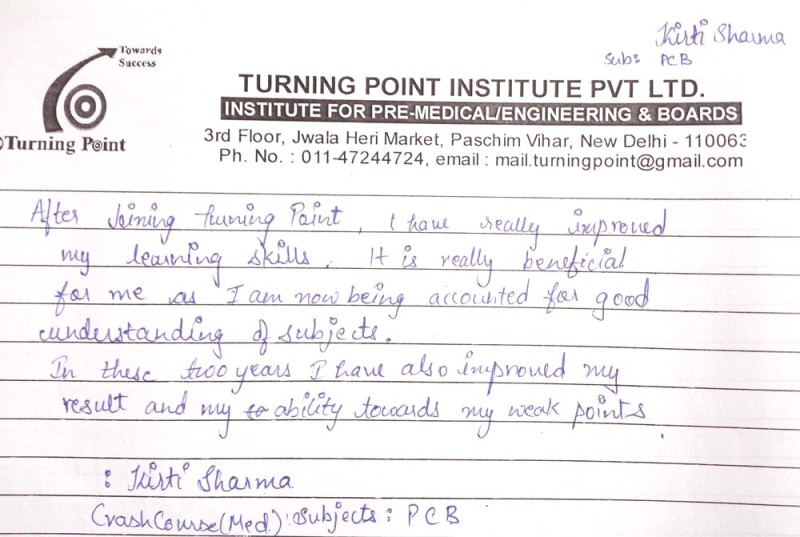 Kirti Sharma
Sub: PCB
Towards
Success
Turning Point
TURNING POINT INSTITUTE PVT LTD.
INSTITUTE FOR PRE-MEDICAL/ENGINEERING & BOARDS
3rd Floor, Jwala Heri Market, Paschim Vihar, New Delhi - 110063
Ph. No. : 011-47244724, email : mail.turningpoint@gmail.com
After Joining turning Point, I have really improved
my learning skills. It is really beneficial
for me as I am now being accounted for good
understanding of subjects.
In these two years I have also improved my
result and my to ability towards my weak points.
: Kirti Sharma
Crash Course (Med.) : Subjects : PCB